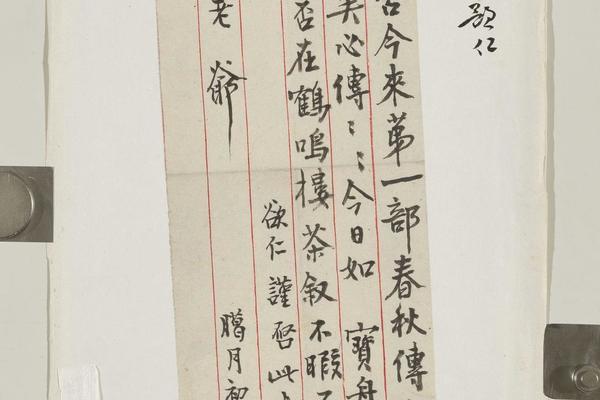 仁
古今來第一部春秋傳
心傳〻〻今日如 寶舟
否在鶴鳴樓茶叙不暇
欲仁謹啓此
老爺 臘月初